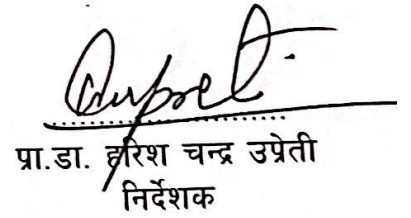 प्रा.डा. हरिश चन्द्र उप्रेती
निर्देशक